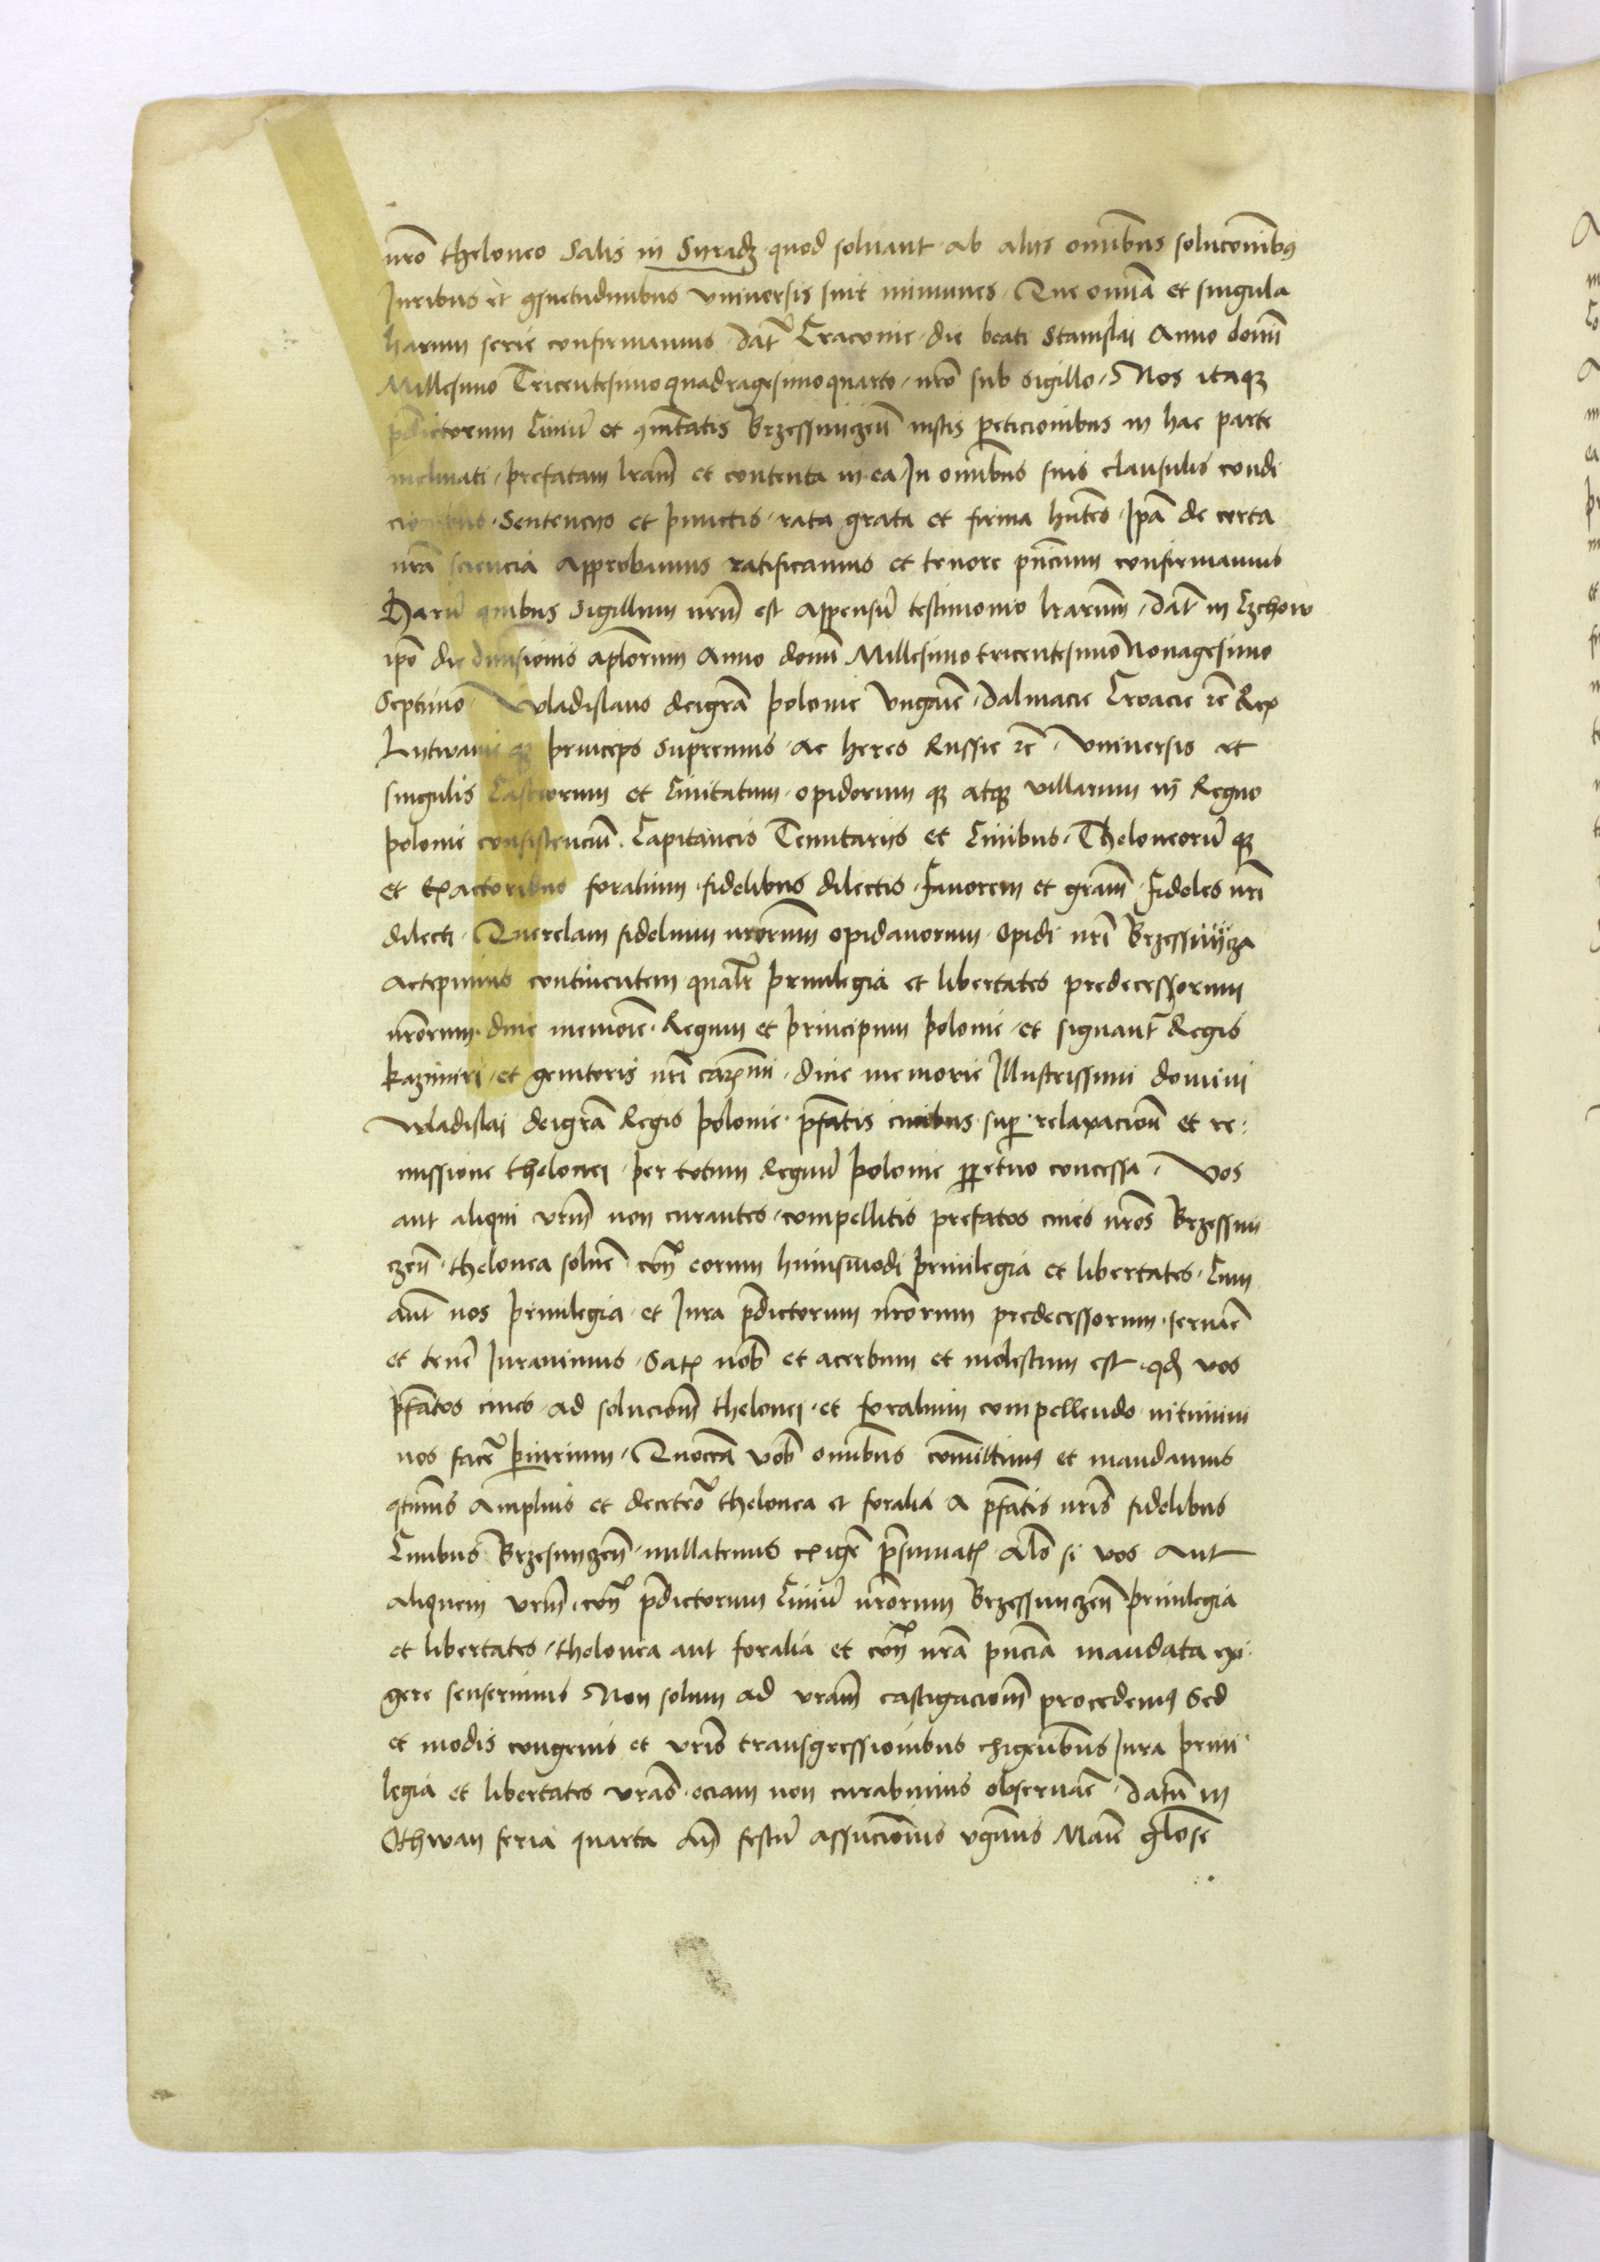 nr̄o theloneo Salis in Syradz quod soluant ab alijs om̄ibus soluconibus
Iuribus et ꝯsuetudinibus vniuersis sint inmunes. Que om̄ia et singula
harum serie confirmamus. Dat̄ Cracouie die beati Stanislai Anno domī
Millesimo Tricentesimo quadragesimo quarto nr̄o sub sigillo. Nos itaqꝫ
p̄dictorum Ciuiū et ꝯmītatis Brzessniczen̄ iustis peticionibus in hac parte
inclinati prefatam lr̄am et contenta in ea In om̄ibus suis clausulis condi
cionibus Sentencijs et punctis rata grata et firma hn̄tes Ip̄a de certa
nr̄a sciencia approbamus ratificamus et tenore pn̄cium confirmamus
Harū quibus Sigillum nr̄um est appensū testimonio lr̄arum. Dat̄ in Czchow
ip̄o die diuisionis apl̄orum Anno domī Millesimo tricentesimo Nonagesimo
Septimo Wladislaus deigr̄a polonie Vngarie Dalmacie Croacie rē Rex
Lytwanieqꝫ princeps Supremus ac heres Russie rē. Vniuersis et
singulis Castrorum et Ciuitatum opidorum qꝫ atqꝫ villarum in Regno
polonie consistenciū Capitaneis Tenutarijs et Ciuibus Theloneorū qꝫ
et Exactoribus foralium fidelibus dilectis fauorem et gr̄am Fideles nr̄i
dilecti Querelam fidelium nr̄orum opidanorum Opidi nr̄i Brzessnÿcza
accepimus continentem qualr̄ priuilegia et libertates predecessorum
nr̄orum diue memorie Regum et principum polonie et signant̄ Regis
kazimiri et genitoris nr̄i car̄imi diue memorie Illustrissimi domini
Wladislai deigr̄a Regis polonie pf̄atis ciuibus super relaxacion̄ et re-
missione thelonei per totum Regnū polonie ꝑpetuo concessa. Vos
aut aliqui vr̄m non curantes compellitis prefatos ciues nr̄os Brzessni
czen̄ thelonea soluere con̄ eorum huiusmodi priuilegia et libertates. Cum
aut̄ nos priuilegia et Iura p̄dictorum nr̄orum predecessorum seruare
et tenere Iurauimus Satis nob̄ et acerbum et molestum est qd̄ vos
pf̄atos ciues ad solucionem thelonei et foralium compellendo nitimini
nos facere periurium. Quocirca vob̄ om̄ibus comittimus et mandamus
qtinus Amplius et decetero thelonea et foralia a pf̄atis nr̄is fidelibus
Ciuibus Brzesnyczen̄ nullatenus exigere p̄sumatis Al̄s si vos Aut
aliquem vr̄m con̄ p̄dictorum Ciuiū nr̄orum Brzessniczen̄ priuilegia
et libertates thelonea aut foralia et con̄ nr̄a pn̄cia mandata exi
gere senserimus Non solum ad vr̄am castigacionem procedemus Sed
et modis congruis et vr̄is transgressionibus exigentibus Iura priui
legia et libertates vr̄as eciam non curabimus obseruare. Datū in
Othwan feria quarta an̄ festū assūcionis vginis Marie glōse